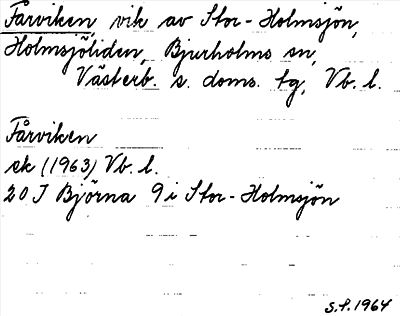 Fårviken, vik av Stor-Holmsjön,
Holmsjöliden, Bjurholms sn,
Västerb. s. doms. tg, Vb. l.
Fårviken
ek (1963) Vb. l.
20 J Björna 9 i Stor-Holmsjön
S.P. 1964